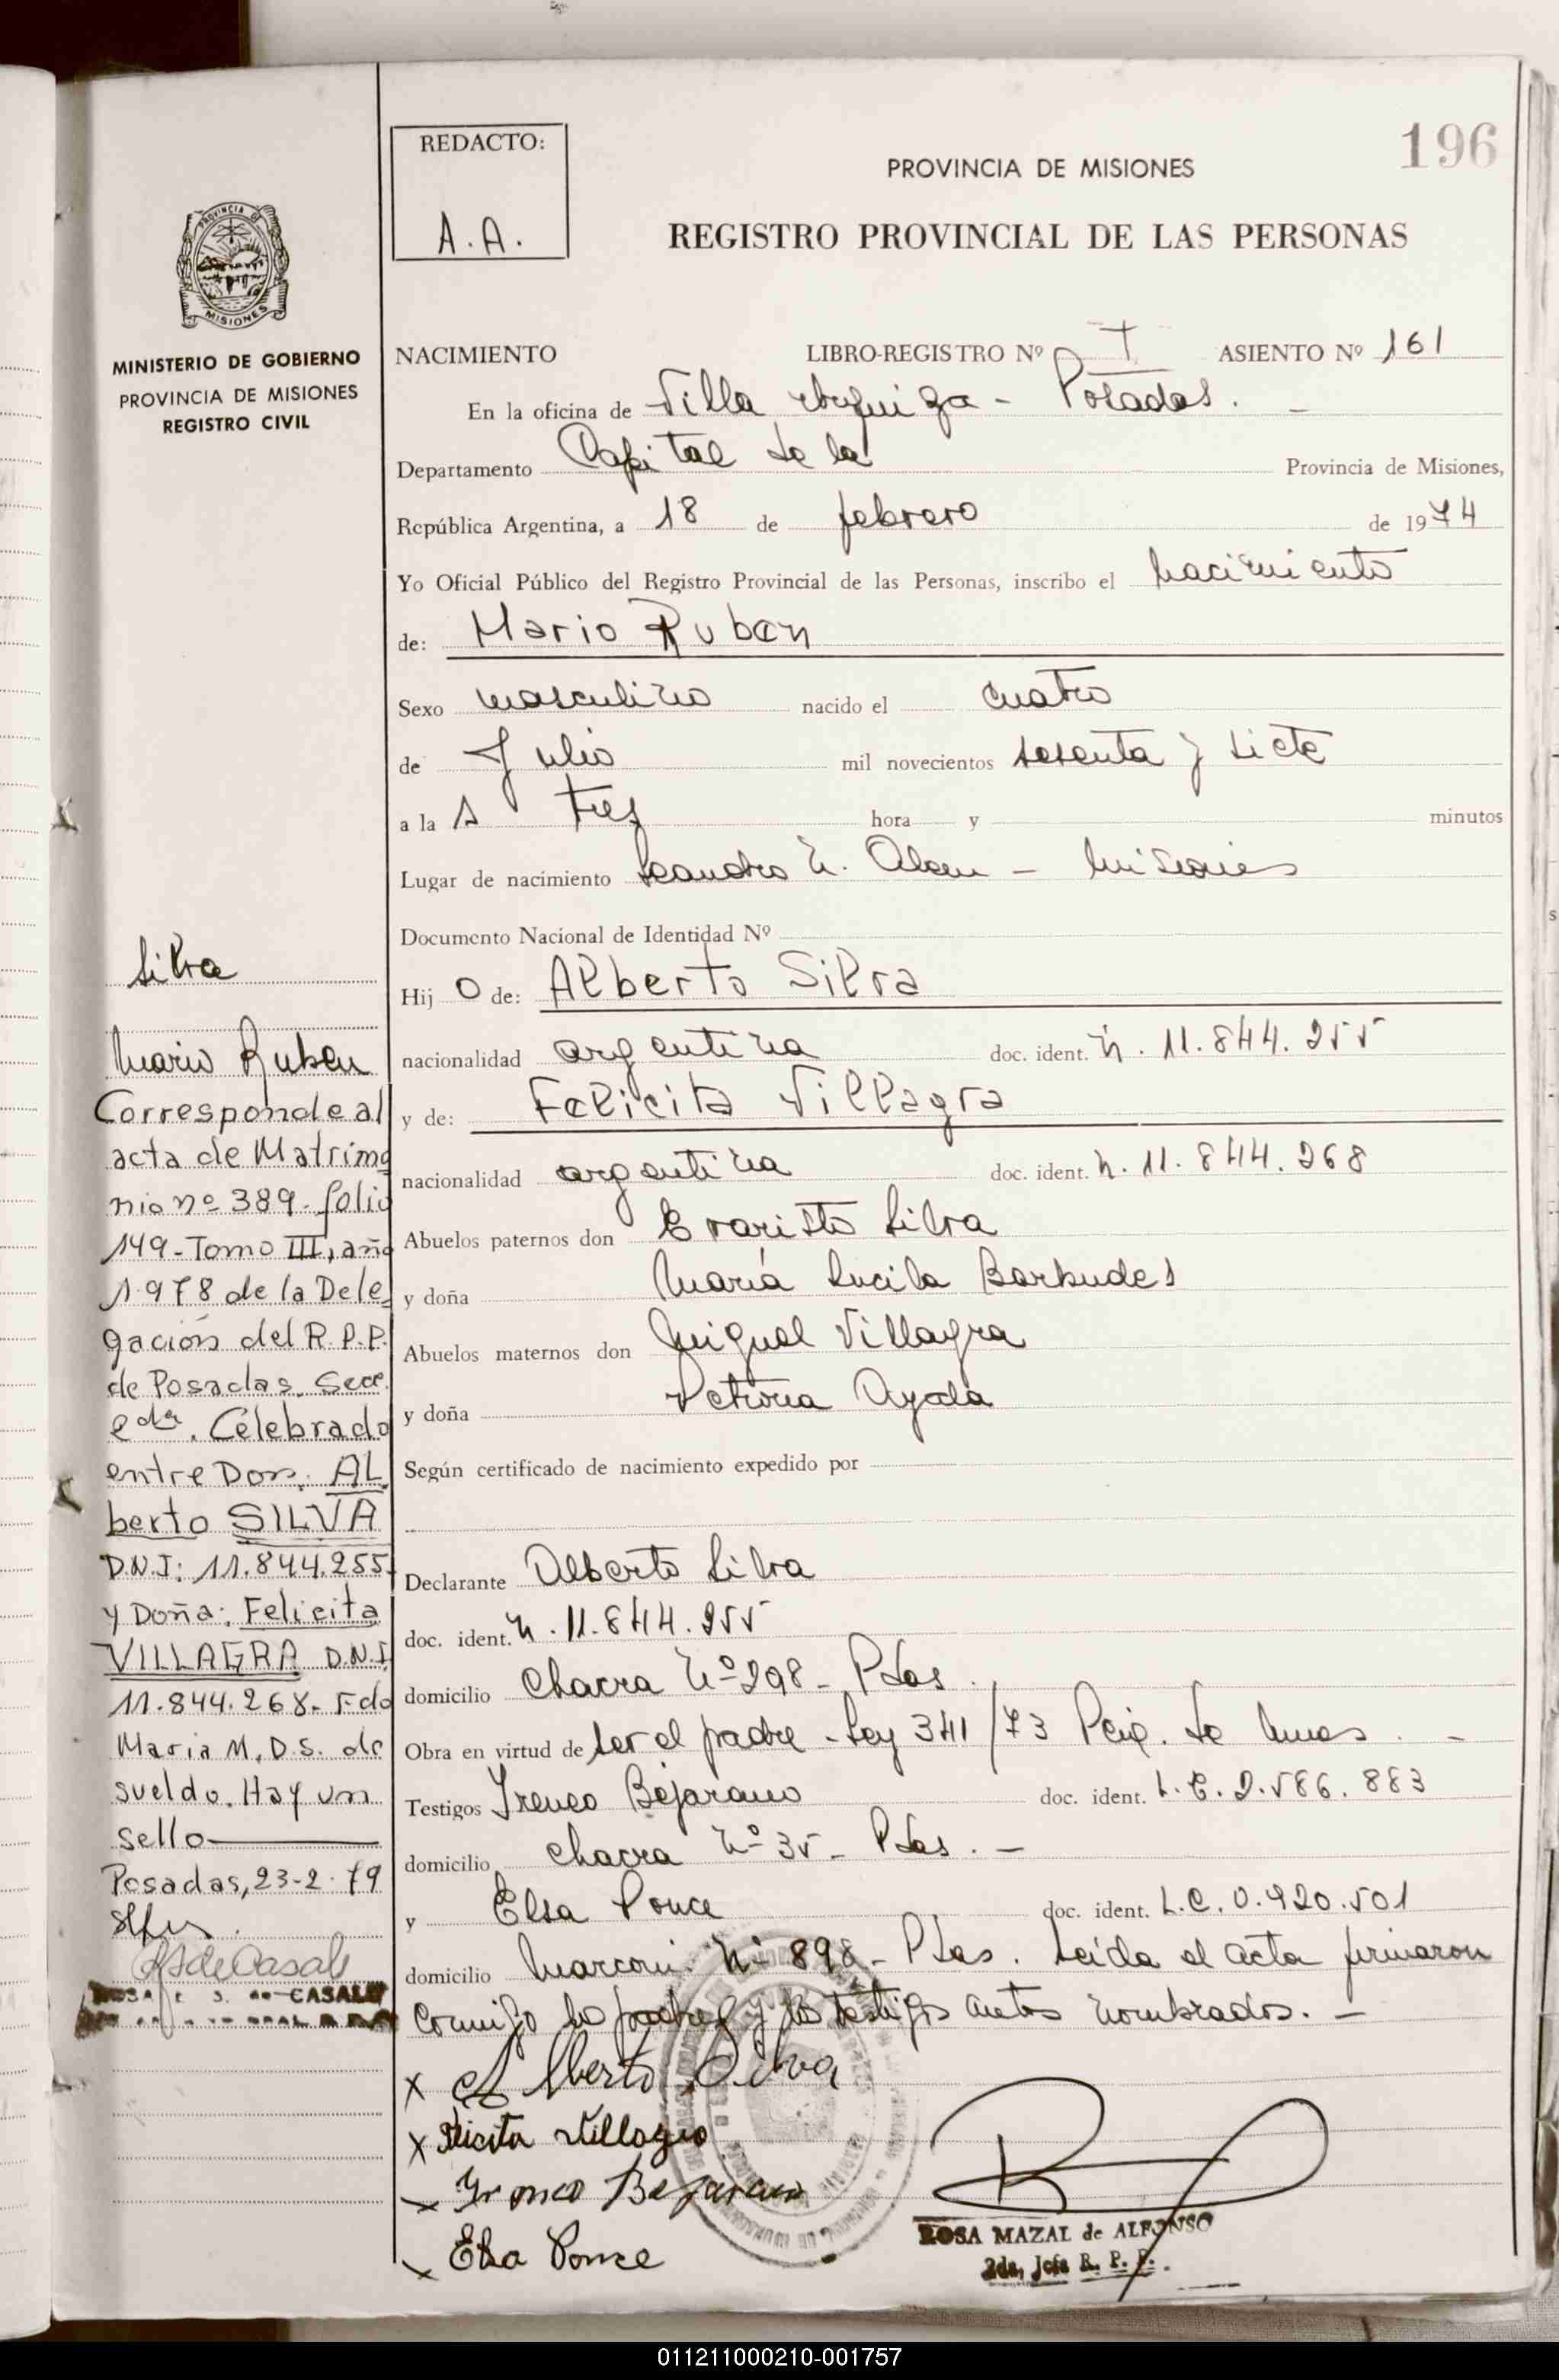 196
REDACTO:
A.A.
PROVINCIA DE MISIONES
REGISTRO PROVINCIAL DE LAS PERSONAS
PROVINCIA DE
MISIONES
MINISTERIO DE GOBIERNO
PROVINCIA DE MISIONES
REGISTRO CIVIL
NACIMIENTO LIBRO-REGISTRO Nº I ASIENTO Nº 161
En la oficina de Villa Urquiza - Posadas. -
Departamento Capital de la Provincia de Misiones,
República Argentina, a 18 de febrero de 1974
Yo Oficial Público del Registro Provincial de las Personas, inscribo el nacimiento
de: Mario Ruben
Sexo masculino nacido el cuatro
de Julio mil novecientos sesenta y siete
a la s tres hora y minutos
Lugar de nacimiento Leandro N. Alem - Misiones
Documento Nacional de Identidad Nº
Hij o de: Alberto Silva
nacionalidad argentina doc. ident. N. 11.844.255
y de: Felicita Villagra
nacionalidad argentina doc. ident. N. 11.844.268
Abuelos paternos don Evaristo Silva
y doña María Lucila Barbudes
Abuelos maternos don Miguel Villagra
y doña Petrona Ayala
Según certificado de nacimiento expedido por
Declarante Alberto Silva
doc. ident. N. 11.844.255
domicilio Chacra Nº 298 - Pdas.
Obra en virtud de ser el padre - Ley 341/73 Pcia. de Mnes. -
Testigos Ireneo Bejarano doc. ident. L.E. 2.586.883
domicilio chacra Nº 35 - Pdas. -
y Elsa Ponce doc. ident. L.C. 0.920.501
domicilio Marconi Nº 898 - Pdas. Leída el acta firmaron
conmigo los padres y los testigos antes nombrados. -
x Alberto Silva
x Felicita Villagra
x Ireneo Bejarano
x Elsa Ponce
ROSA MAZAL de ALFONSO
2da. Jefe R. P. P.
Silva
Mario Ruben
Corresponde al
acta de Matrimo
nio nº 389 - folio
149 - Tomo III, año
1.978 de la Dele
gación del R.P.P.
de Posadas, Secc.
2da. Celebrado
entre Don: AL
berto SILVA
D.N.I: 11.844.255
y Doña: Felicita
VILLAGRA D.N.I
11.844.268. Fdo
Maria M. D. S. de
sueldo. Hay un
sello
Posadas, 23-2-79
de CASALE
011211000210-001757